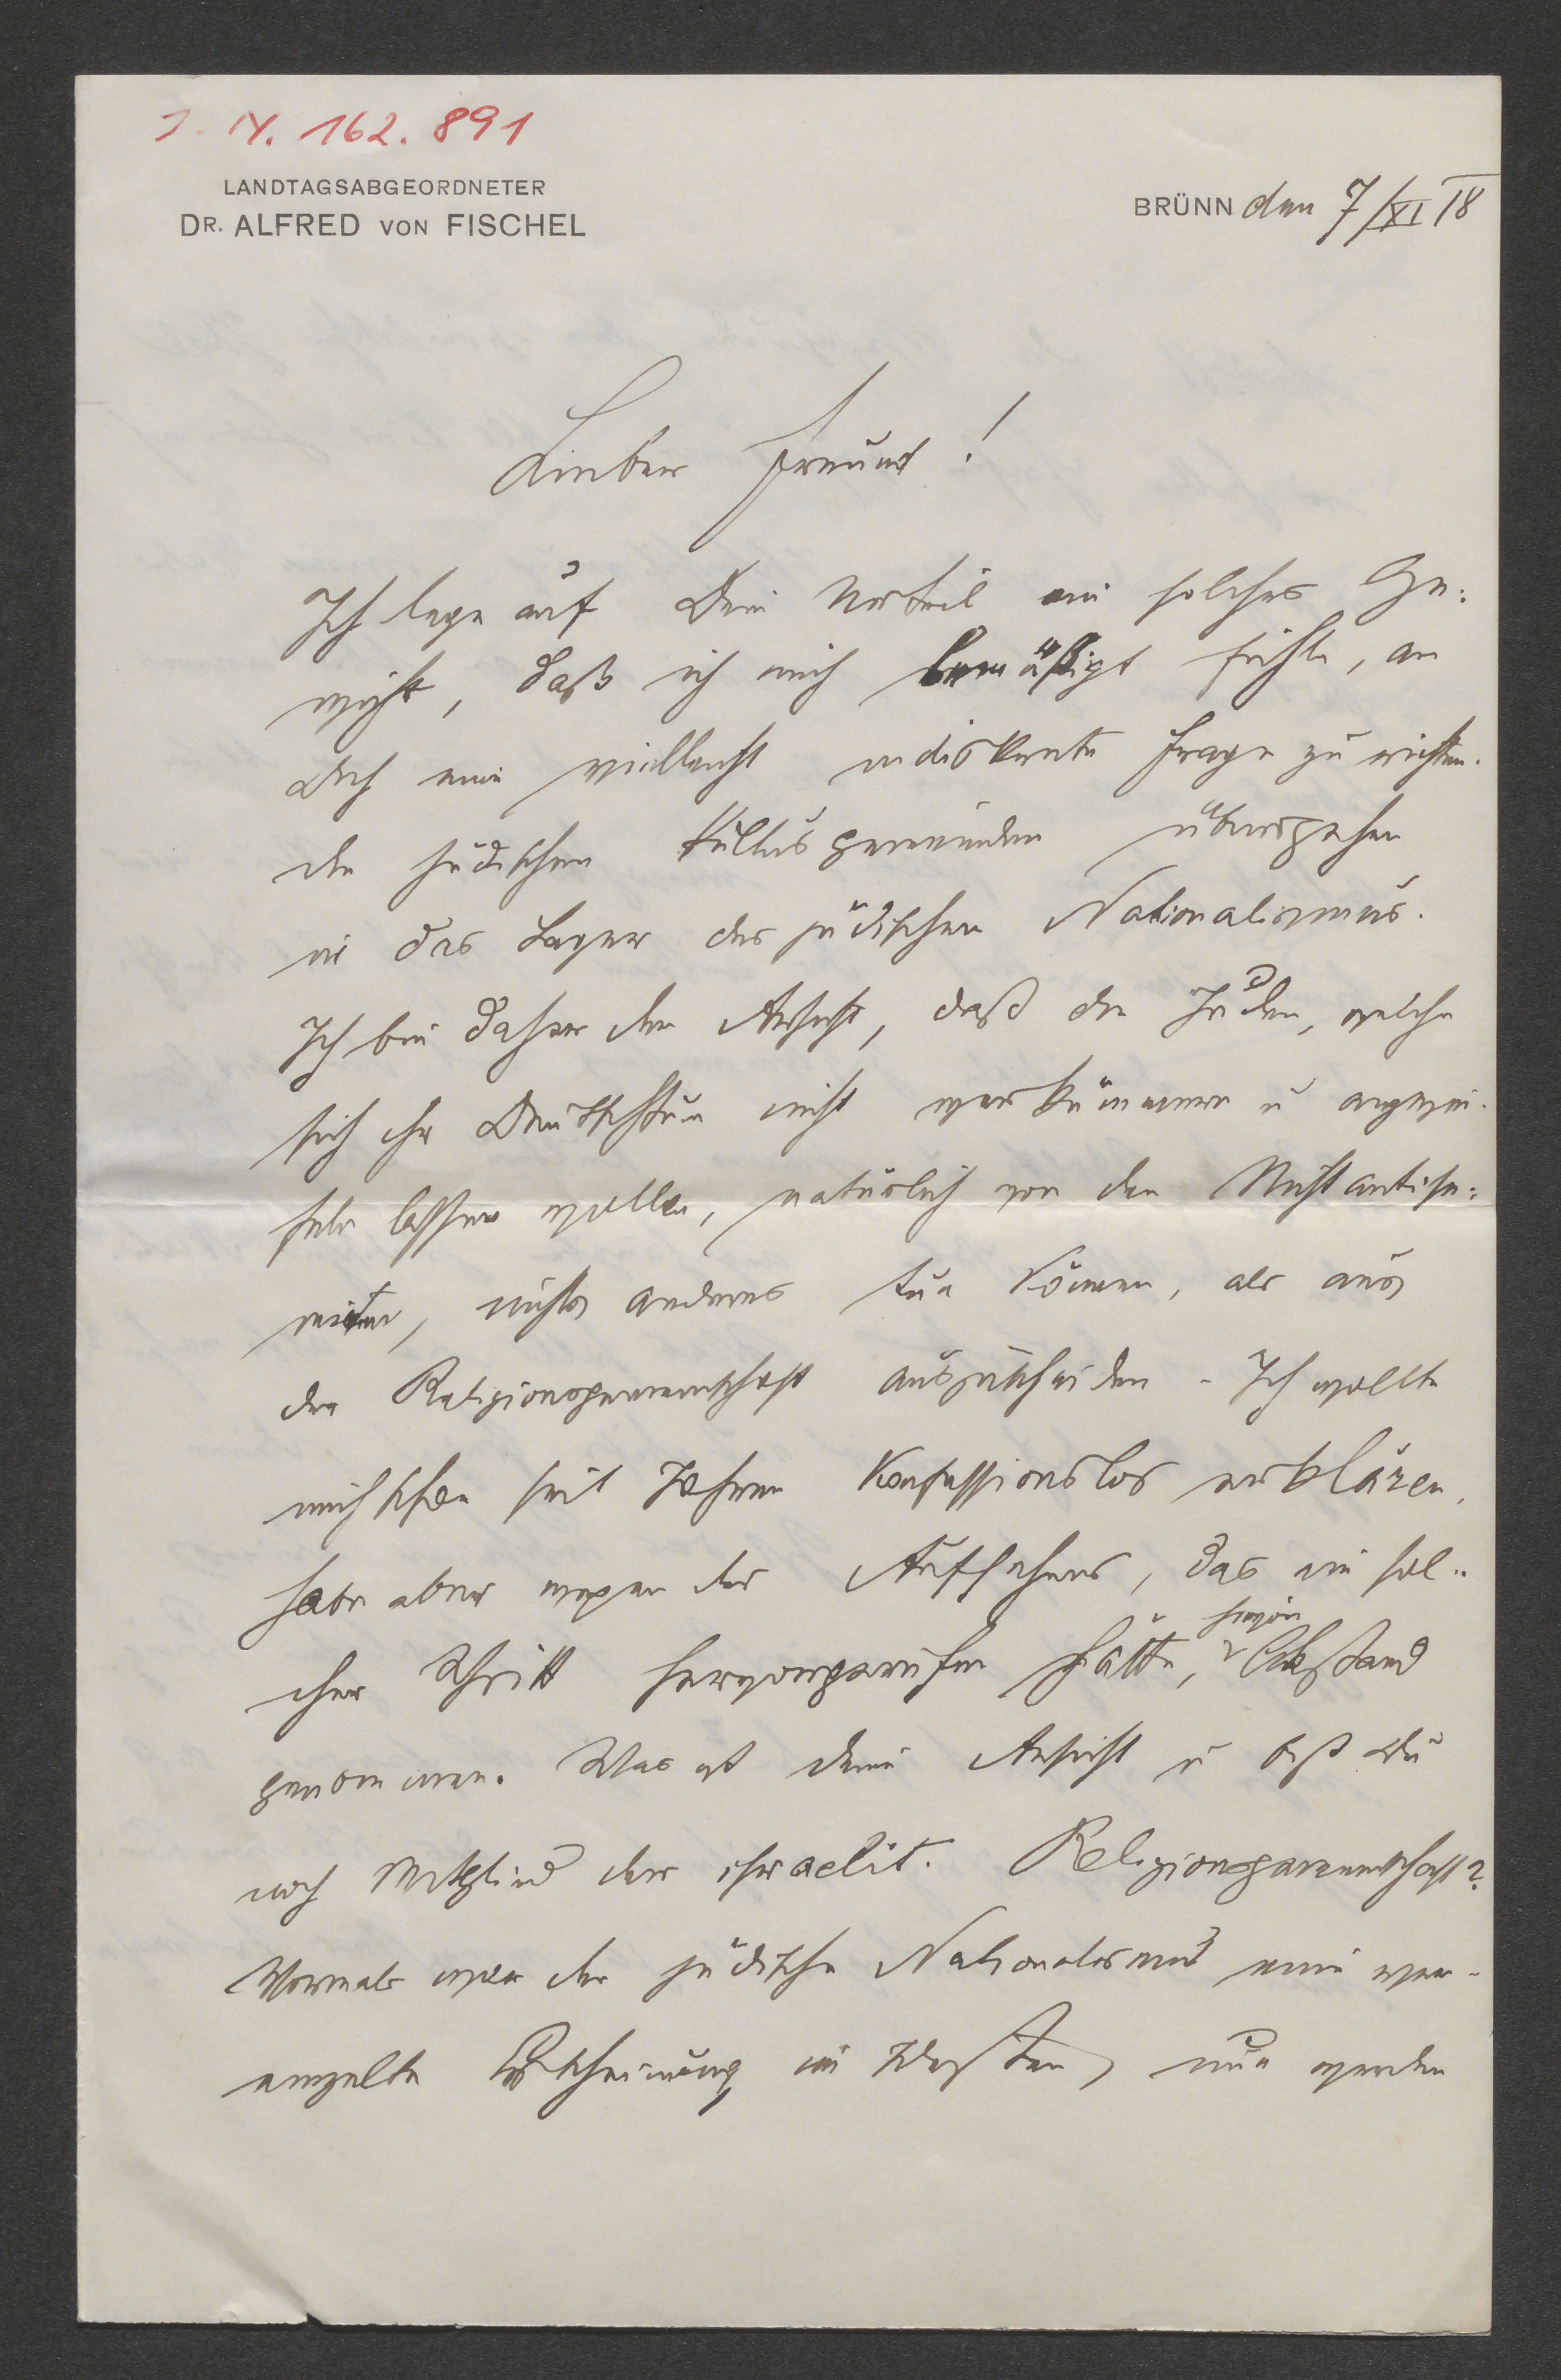 I. N. 162.891
LANDTAGSABGEORDNETER
DR. ALFRED VON FISCHEL
BRÜNN den 7/XI 18
Lieber Freund!
Ich lege auf Dein Urteil ein solches Ge-
wicht, daß ich mich bemüßigt fühle, an
Dich eine vielleicht indiskrete Frage zu richten.
Die jüdischen Kultusgemeinden übergehen
in das Lager des jüdischen Nationalismus.
Ich bin daher der Ansicht, daß die Juden, welche
sich ihr Deutschtum nicht verkümmern u anzwei-
feln lassen wollen, natürlich von den Nichtantise-
miten, nichts anderes tun können, als aus
der Religionsgemeinschaft auszuscheiden. Ich wollte
mich schon seit Jahren konfessionslos erklären,
habe aber wegen des Aufsehens, das ein sol-
cher Schritt hervorgerufen hätte, hievon Abstand
genommen. Was ist deine Ansicht u bist Du
noch Mitglied der israelit. Religionsgemeinschaft?
Vormals war der jüdische Nationalismus eine ver-
einzelte Erscheinung im Westen, nun werden